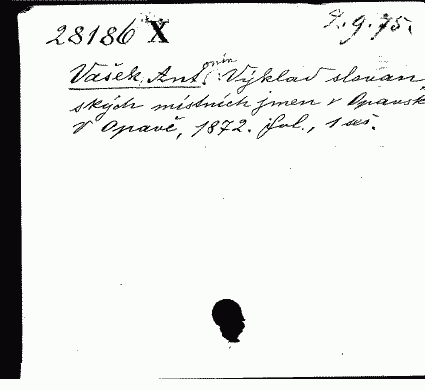 28186 X
I.g.75.
Vašek, Antonín: Výklad slovan,
ských místních jmen v Opavsk
V Opavě, 1872. fol., 1 seš.